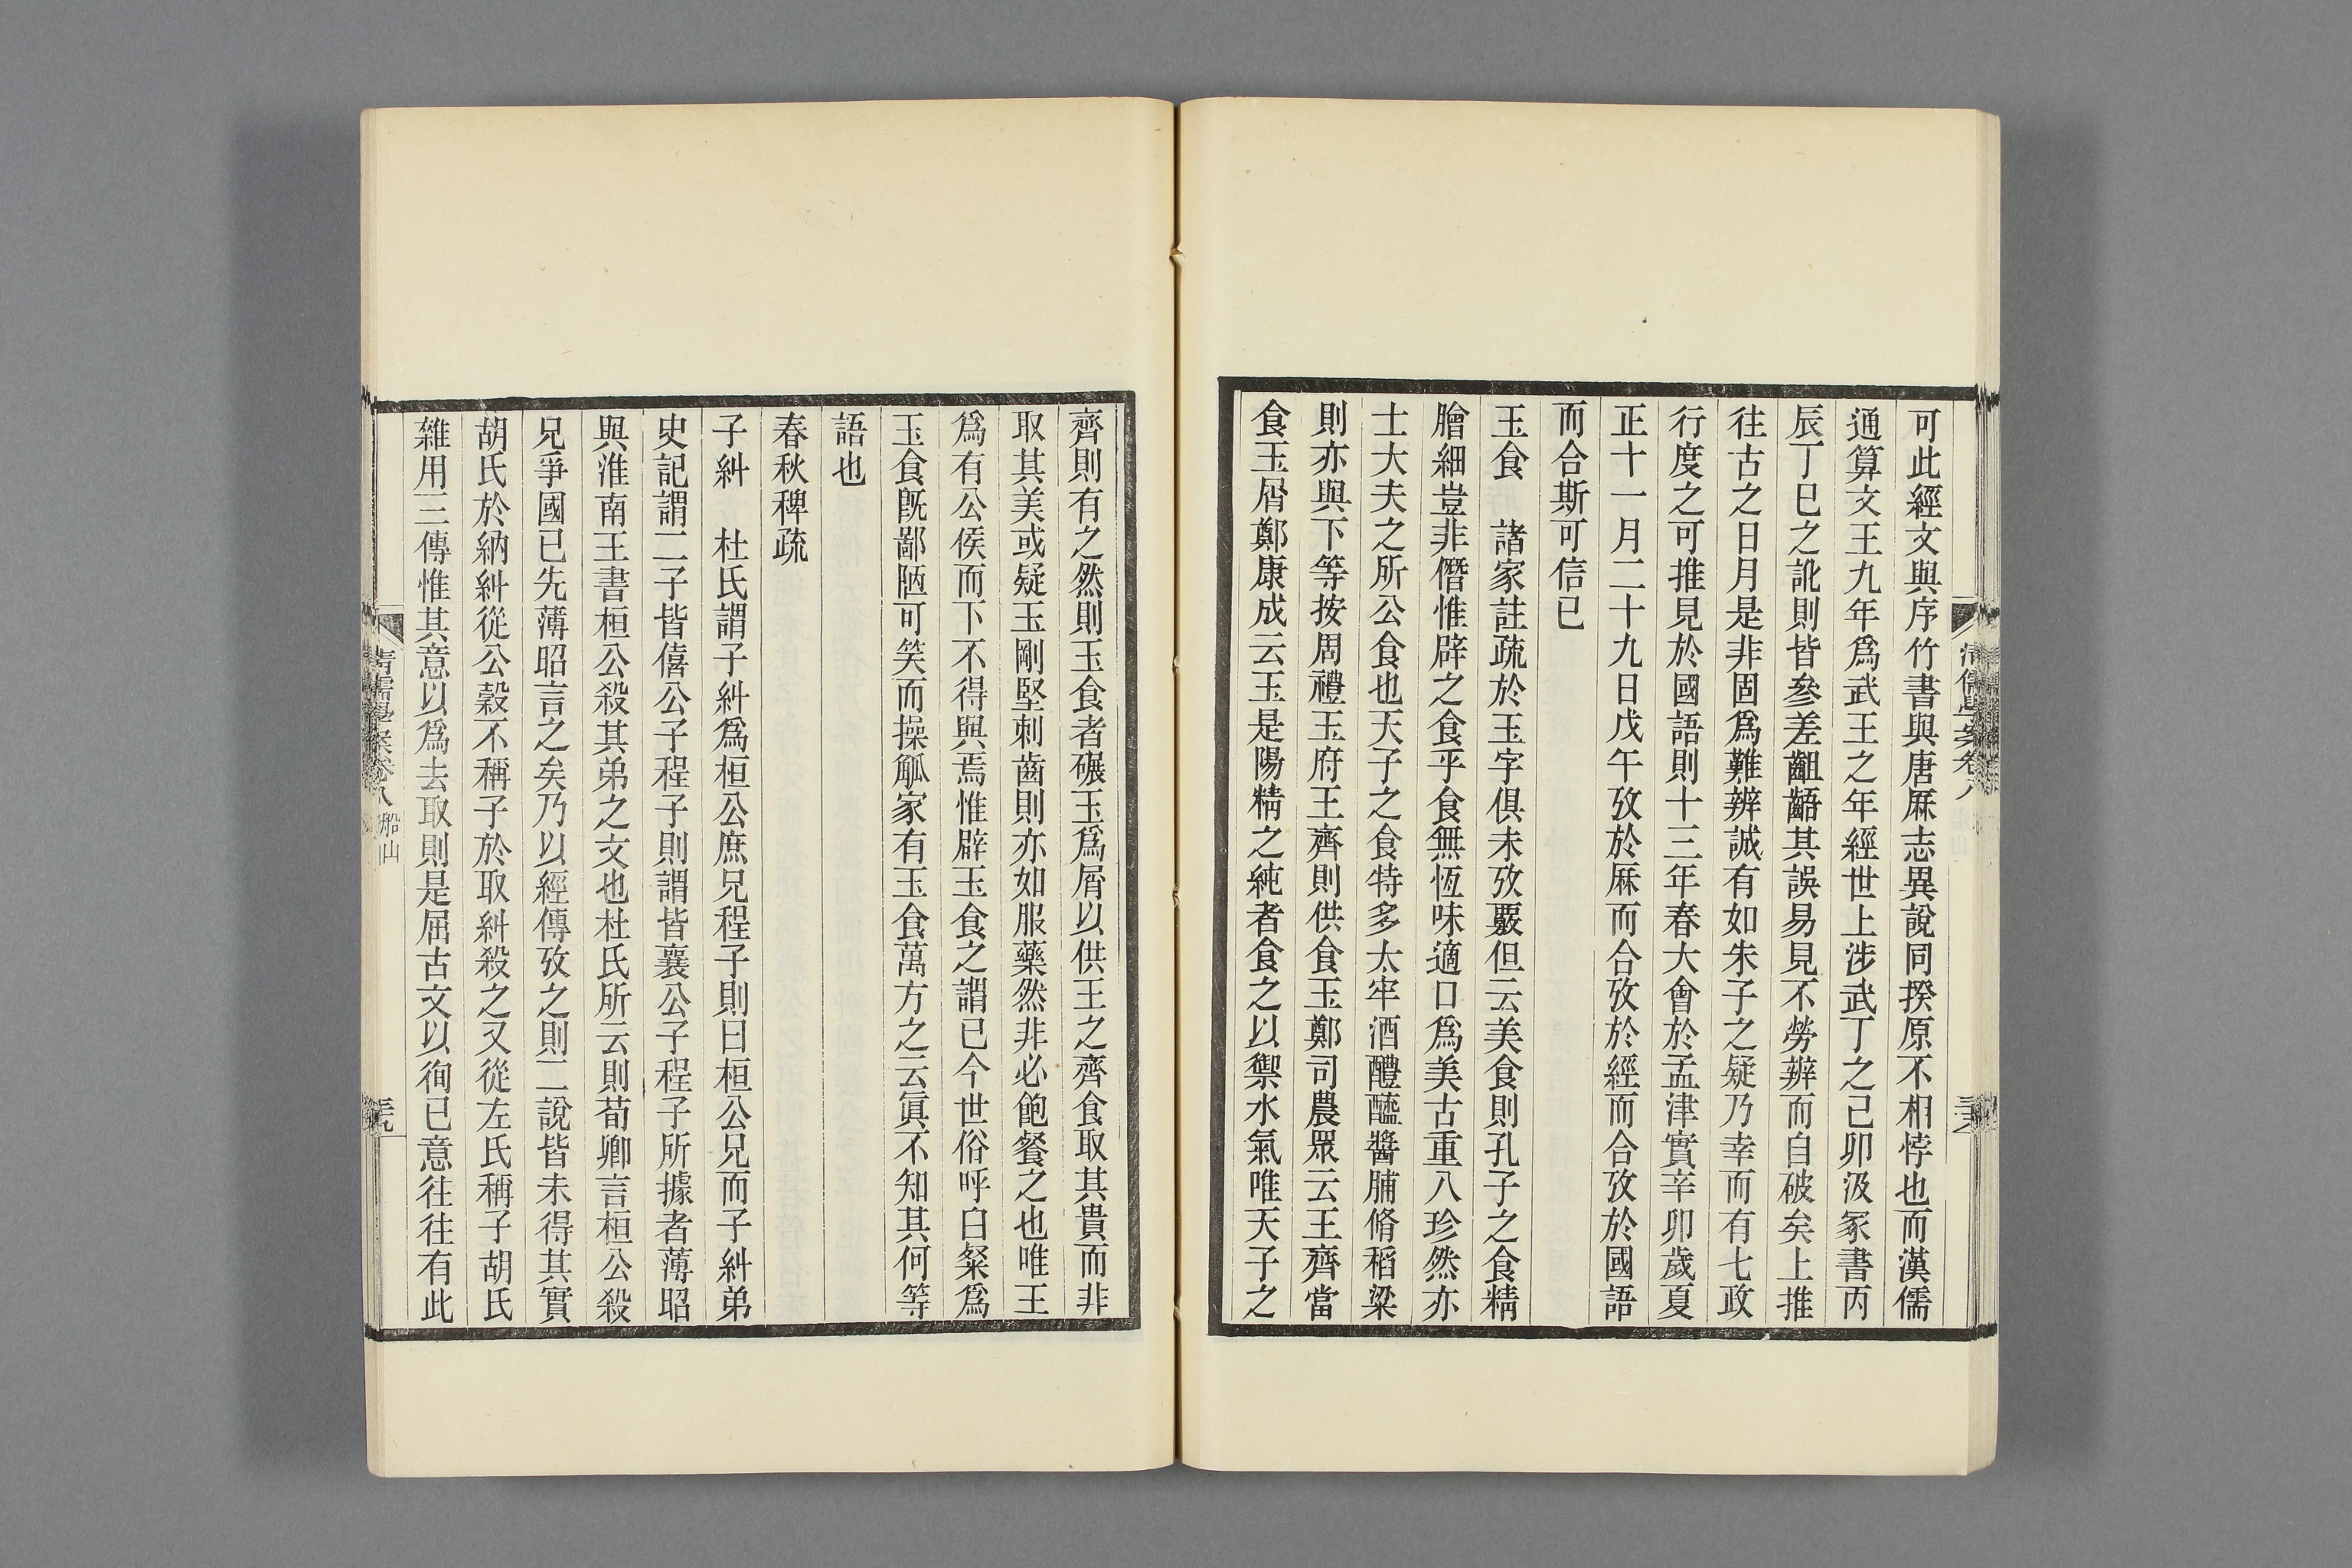 可此經文與序竹書與唐厤志異說同揆原不相悖也而漢儒
通算文王九年爲武王之年經世上涉武丁之己卯汲冢書丙
辰丁巳之訛則皆參差齟齬其誤易見不勞辨而自破矣上推
往古之日月是非固爲難辨誠有如朱子之疑乃幸而有七政
行度之可推見於國語則十三年春大會於孟津實辛卯歲夏
正十一月二十九日戊午攷於厤而合攷於經而合攷於國語
而合斯可信已
玉食　諸家註疏於玉字俱未攷覈但云美食則孔子之食精
膾細豈非僭惟辟之食乎食無恆味適口爲美古重八珍然亦
士大夫之所公食也天子之食特多太牢酒醴醯醬脯脩稻粱
則亦與下等按周禮玉府王齊則供食玉鄭司農眾云王齊當
食玉屑鄭康成云玉是陽精之純者食之以禦水氣唯天子之
清儒學案卷八
齊則有之然則玉食者碾玉爲屑以供王之齊食取其貴而非
取其美或疑玉剛堅刺齒則亦如服藥然非必飽餐之也唯王
爲有公侯而下不得與焉惟辟玉食之謂已今世俗呼白粲爲
玉食旣鄙陋可笑而操觚家有玉食萬方之云眞不知其何等
語也
春秋稗疏
子糾　杜氏謂子糾爲桓公庶兄程子則曰桓公兄而子糾弟
史記謂二子皆僖公子程子則謂皆襄公子程子所據者薄昭
與淮南王書桓公殺其弟之文也杜氏所云則荀卿言桓公殺
兄爭國已先薄昭言之矣乃以經傳攷之則二說皆未得其實
胡氏於納糾從公穀不稱子於取糾殺之又從左氏稱子胡氏
雜用三傳惟其意以爲去取則是屈古文以徇已意往往有此
清儒學案卷八　船山